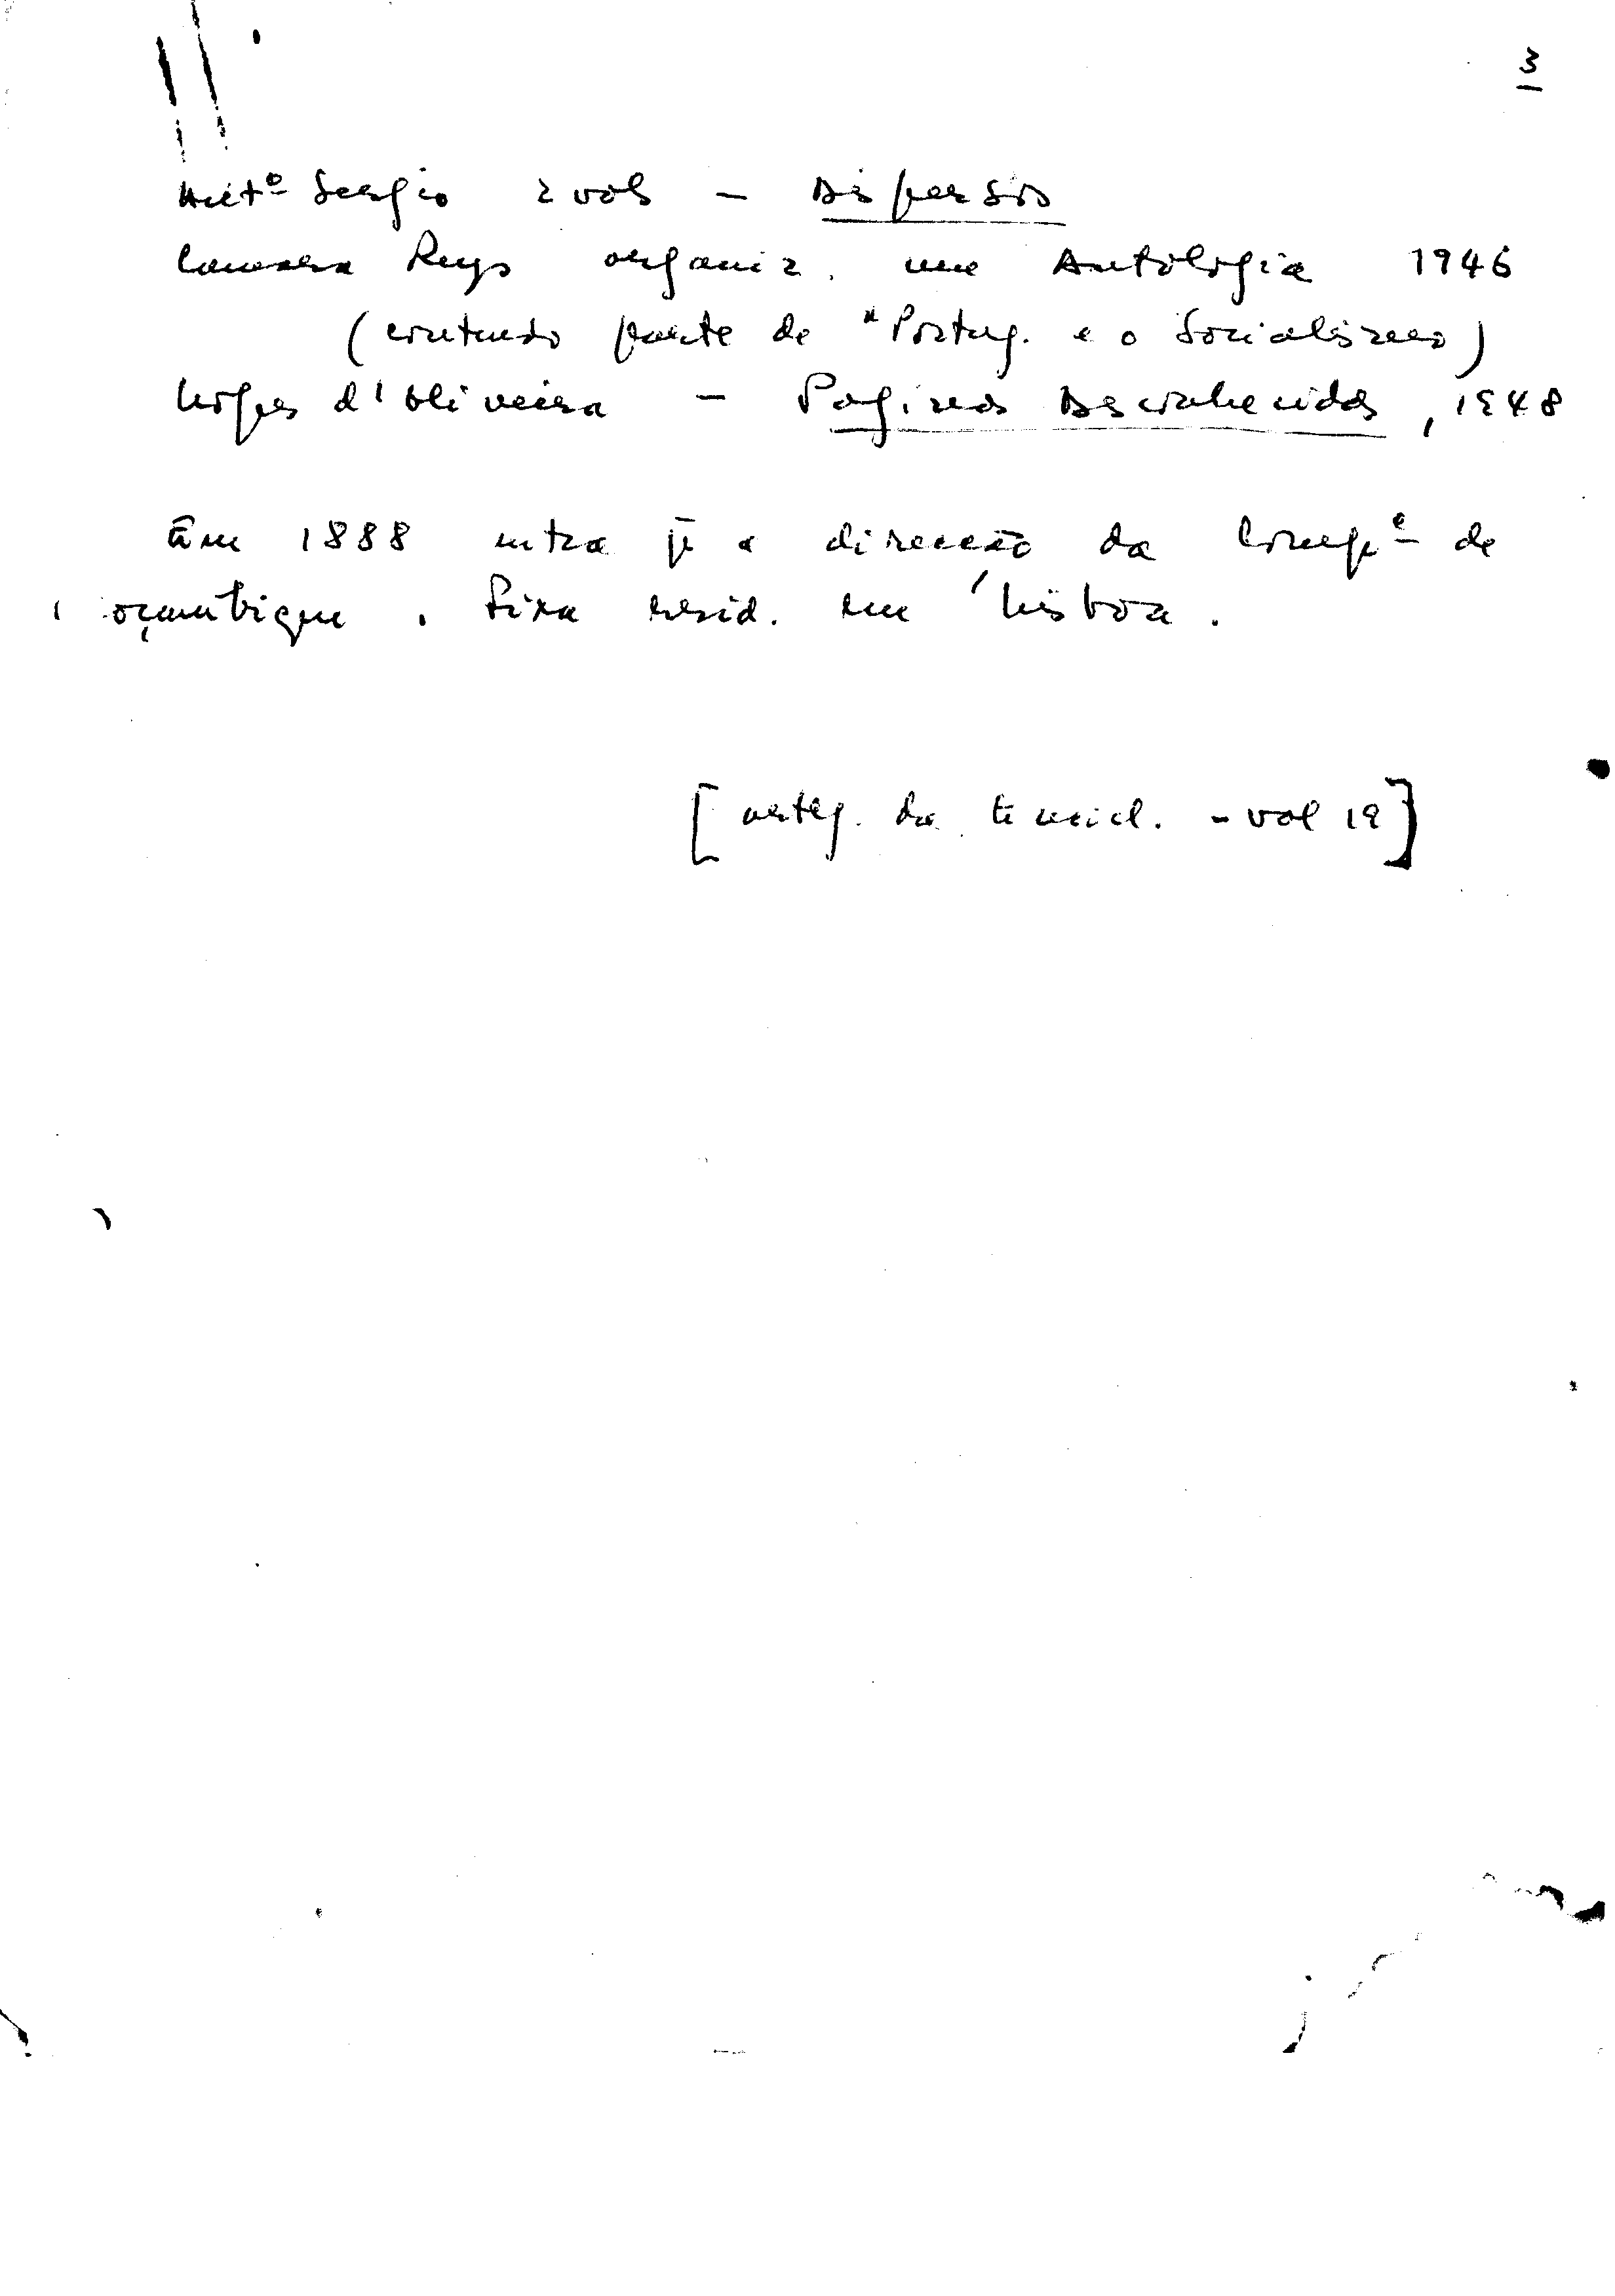 3
Antº Sergio 2 vols - Dispersos
Camara Reys organiz. uma Antologia 1946
(contendo parte de "Portug. e o Socialismo)
Lopes d'Oliveira - Paginas Desconhecidas, 1948
Em 1888 entra p a direcção da Compª de
oçambique. Fixa resid. em Lisboa.
[artig. da Encicl. - vol 19]